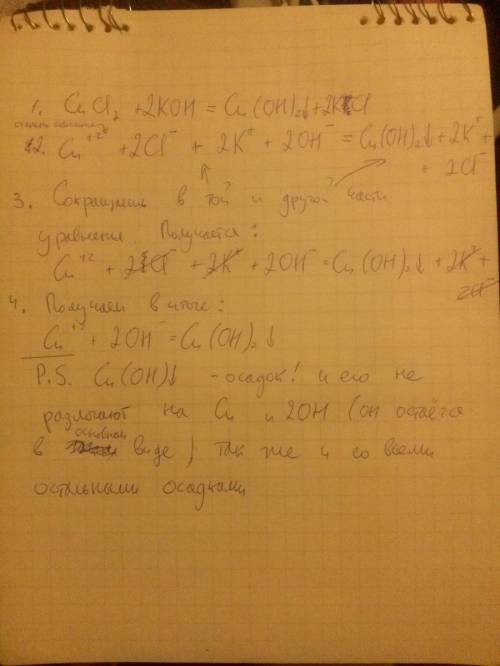 1. CuCl₂ + 2KOH = Cu(OH)₂↓ + 2KCl
2. Cu⁺² + 2Cl⁻ + 2K⁺ + 2OH⁻ = Cu(OH)₂↓ + 2K⁺ +
+ 2Cl⁻
3. Сокращаем в той и другой части
уравнения. Получается:
Cu⁺² + 2Cl⁻ + 2K⁺ + 2OH⁻ = Cu(OH)₂↓ + 2K⁺ +
2Cl⁻
4. Получаем в итоге:
Cu⁺² + 2OH⁻ = Cu(OH)₂↓
P.S. Cu(OH)↓ - осадок! и его не
разлогают на Cu и 2OH (он остаётся
в основном виде) так же и со всеми
остальными осадками